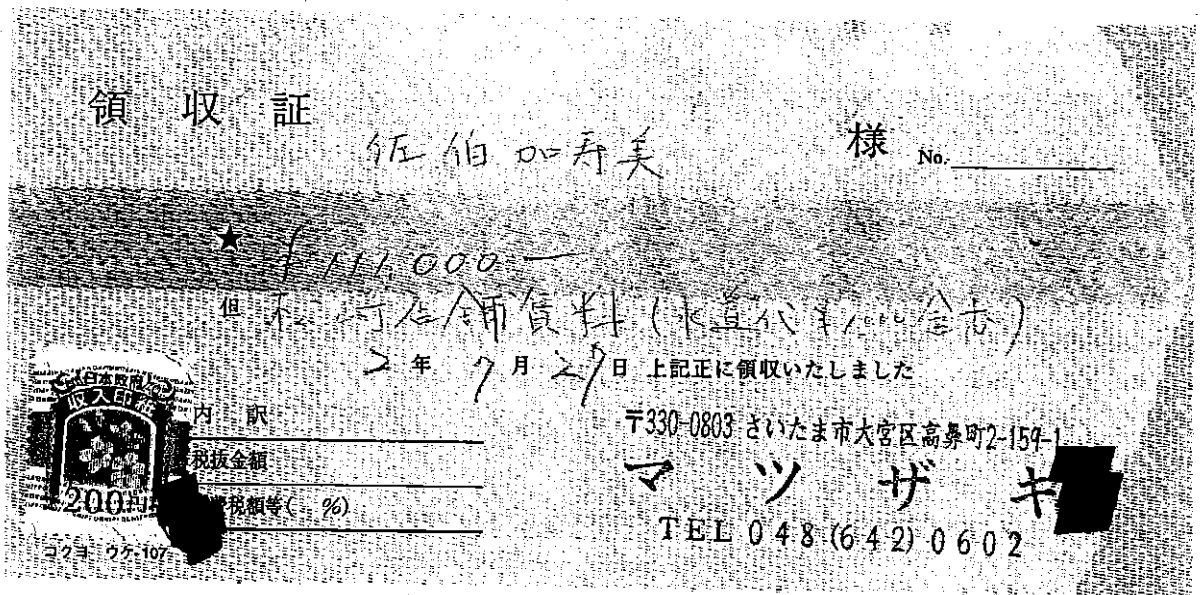 領収証
佐伯加寿美 様 No.
★ ¥111,000―
但 店舗賃料(水道代¥1000含む)
2年7月29日 上記正に領収いたしました
日本政府
収入印紙
200円
内訳
税抜金額
費税額等( %)
コクヨ ウケ-107
〒330-0803 さいたま市大宮区高鼻町2-159-1
マツザキ
TEL 048(642)0602